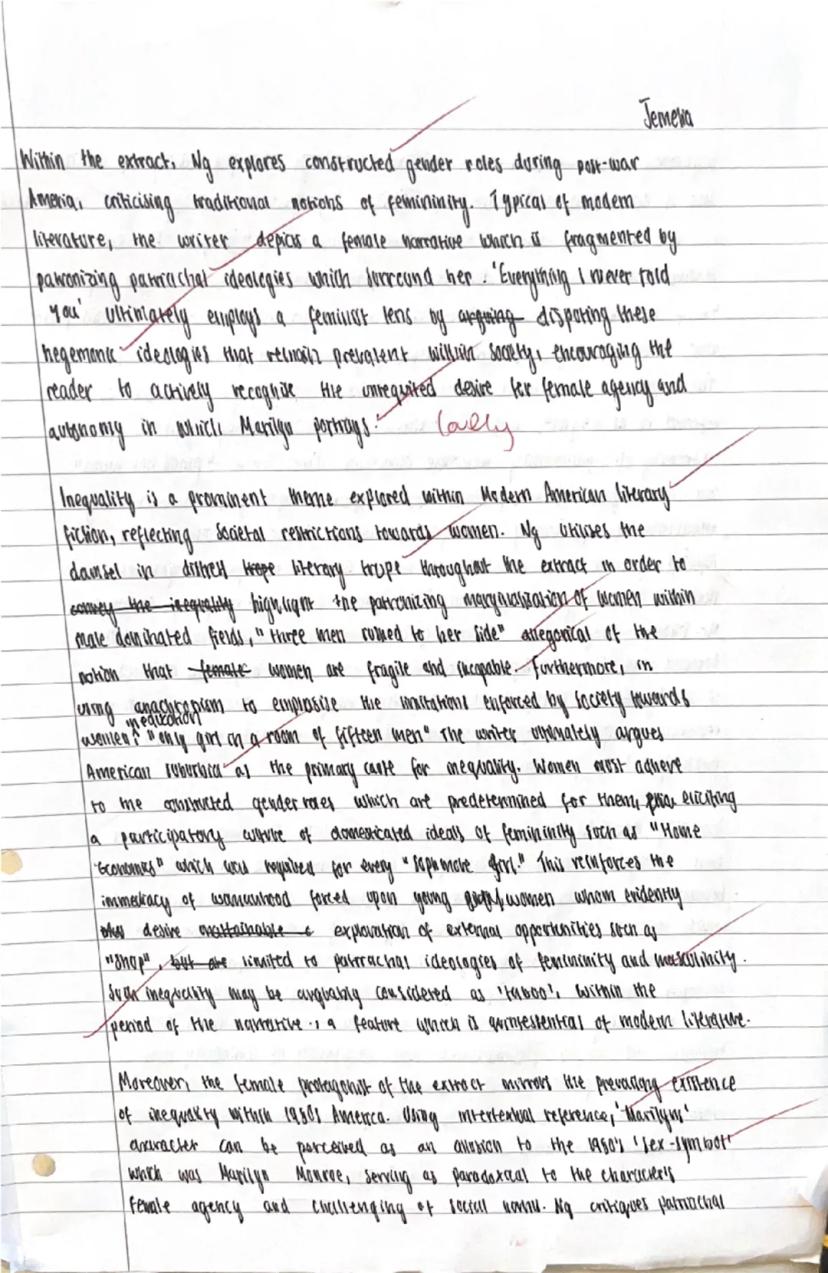 Jemma
Within the extract, Ng explores constructed gender roles during post-war
America, criticising traditional notions of femininity. Typical of modern
literature, the writer depics a female narrative which is fragmented by
patronizing patriachal ideologies which surround her. 'Everything I never told
you' ultimately employs a feminist lens by arguing disputing these
hegemonic ideologies that remain prevalent within society, encouraging the
reader to actively recognise the unrequited desire for female agency and
autonomy in which Marilyn portrays. lovely
Inequality is a prominent theme explored within Modern American literary
fiction, reflecting societal restrictions towards women. Ng utilises the
damsel in distress trope literary trope throughout the extract in order to
convey the inequality highlight the patronizing marginalization of women within
male dominated fields, "three men rushed to her side" allegorical of the
notion that female women are fragile and incapable. Furthermore, in
using anachronism to emphasise the limitations enforced by society towards
women's medication "only girl in a room of fifteen men" the writer ultimately argues
American suburbia as the primary cause for inequality. Women must adhere
to the constructed gender roles which are predetermined for them, eliciting
a participatory culture of domesticated ideals of femininity such as "Home
Economics" which was required for every "sophmore girl." This reinforces the
immediacy of womanhood forced upon young women whom evidently
desire unattainable exploration of external opportunities such as
"shop", but are limited to patriachal ideologies of femininity and masculinity.
Such inequality may be arguably considered as 'taboo', within the
period of the narrative, a feature which is quintessential of modern literature.
Moreover, the female protagonist of the extract mirrors the prevailing existence
of inequality within 1950s America. Using intertextual reference, 'Marilyns'
character can be perceived as an allusion to the 1950's 'sex-symbol'
which was Marilyn Monroe, serving as paradoxical to the characters
female agency and challenging of social norms. Ng critiques patriachal